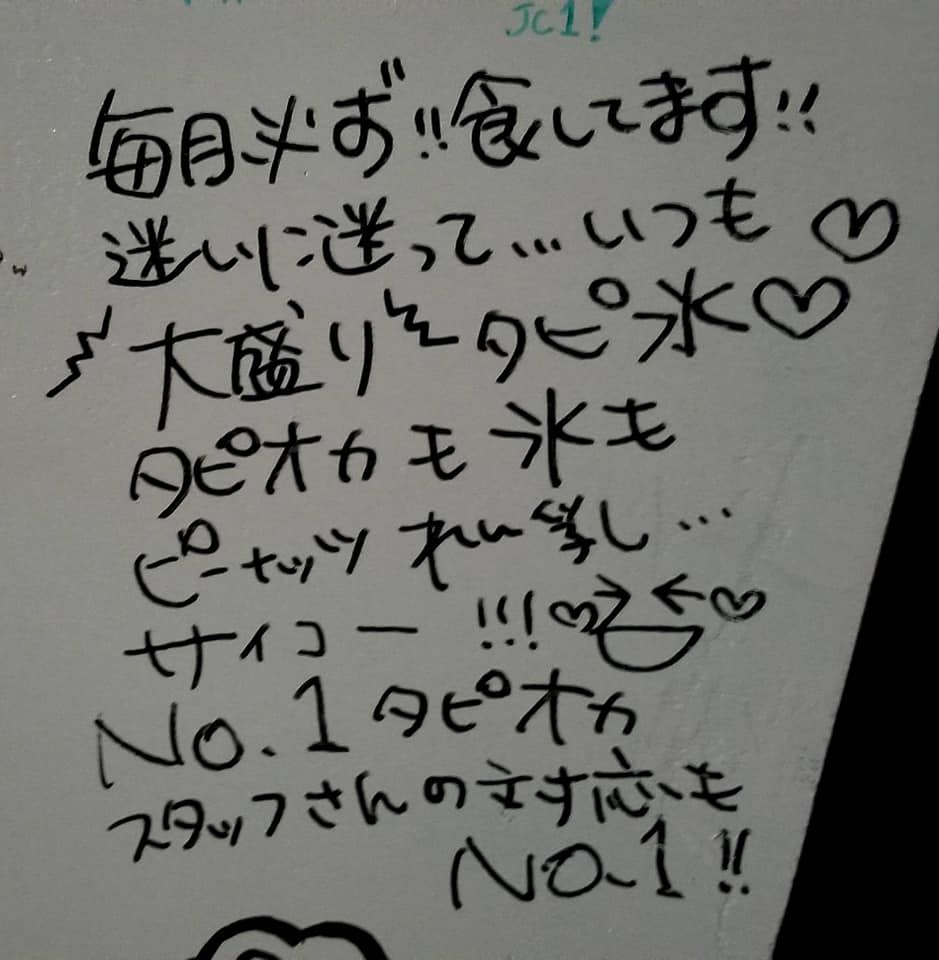 JC1!
毎月必ず!!食してます!!
迷いに迷って…いつも♡
大盛りタピ氷♡
タピオカも氷も
ピーナッツれん乳し…
サイコー!!!♡♡
No.1タピオカ
スタッフさんの対応も
No.1!!